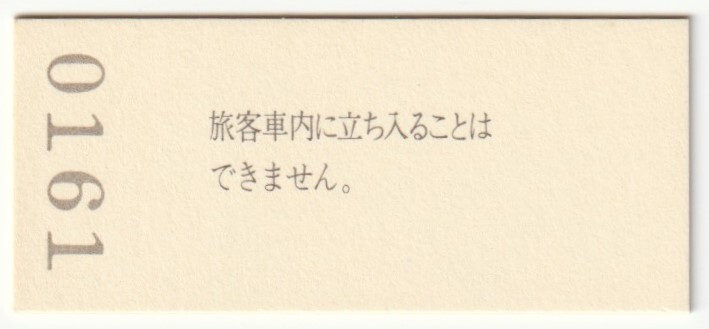 0161
旅客車内に立ち入ることは
できません。